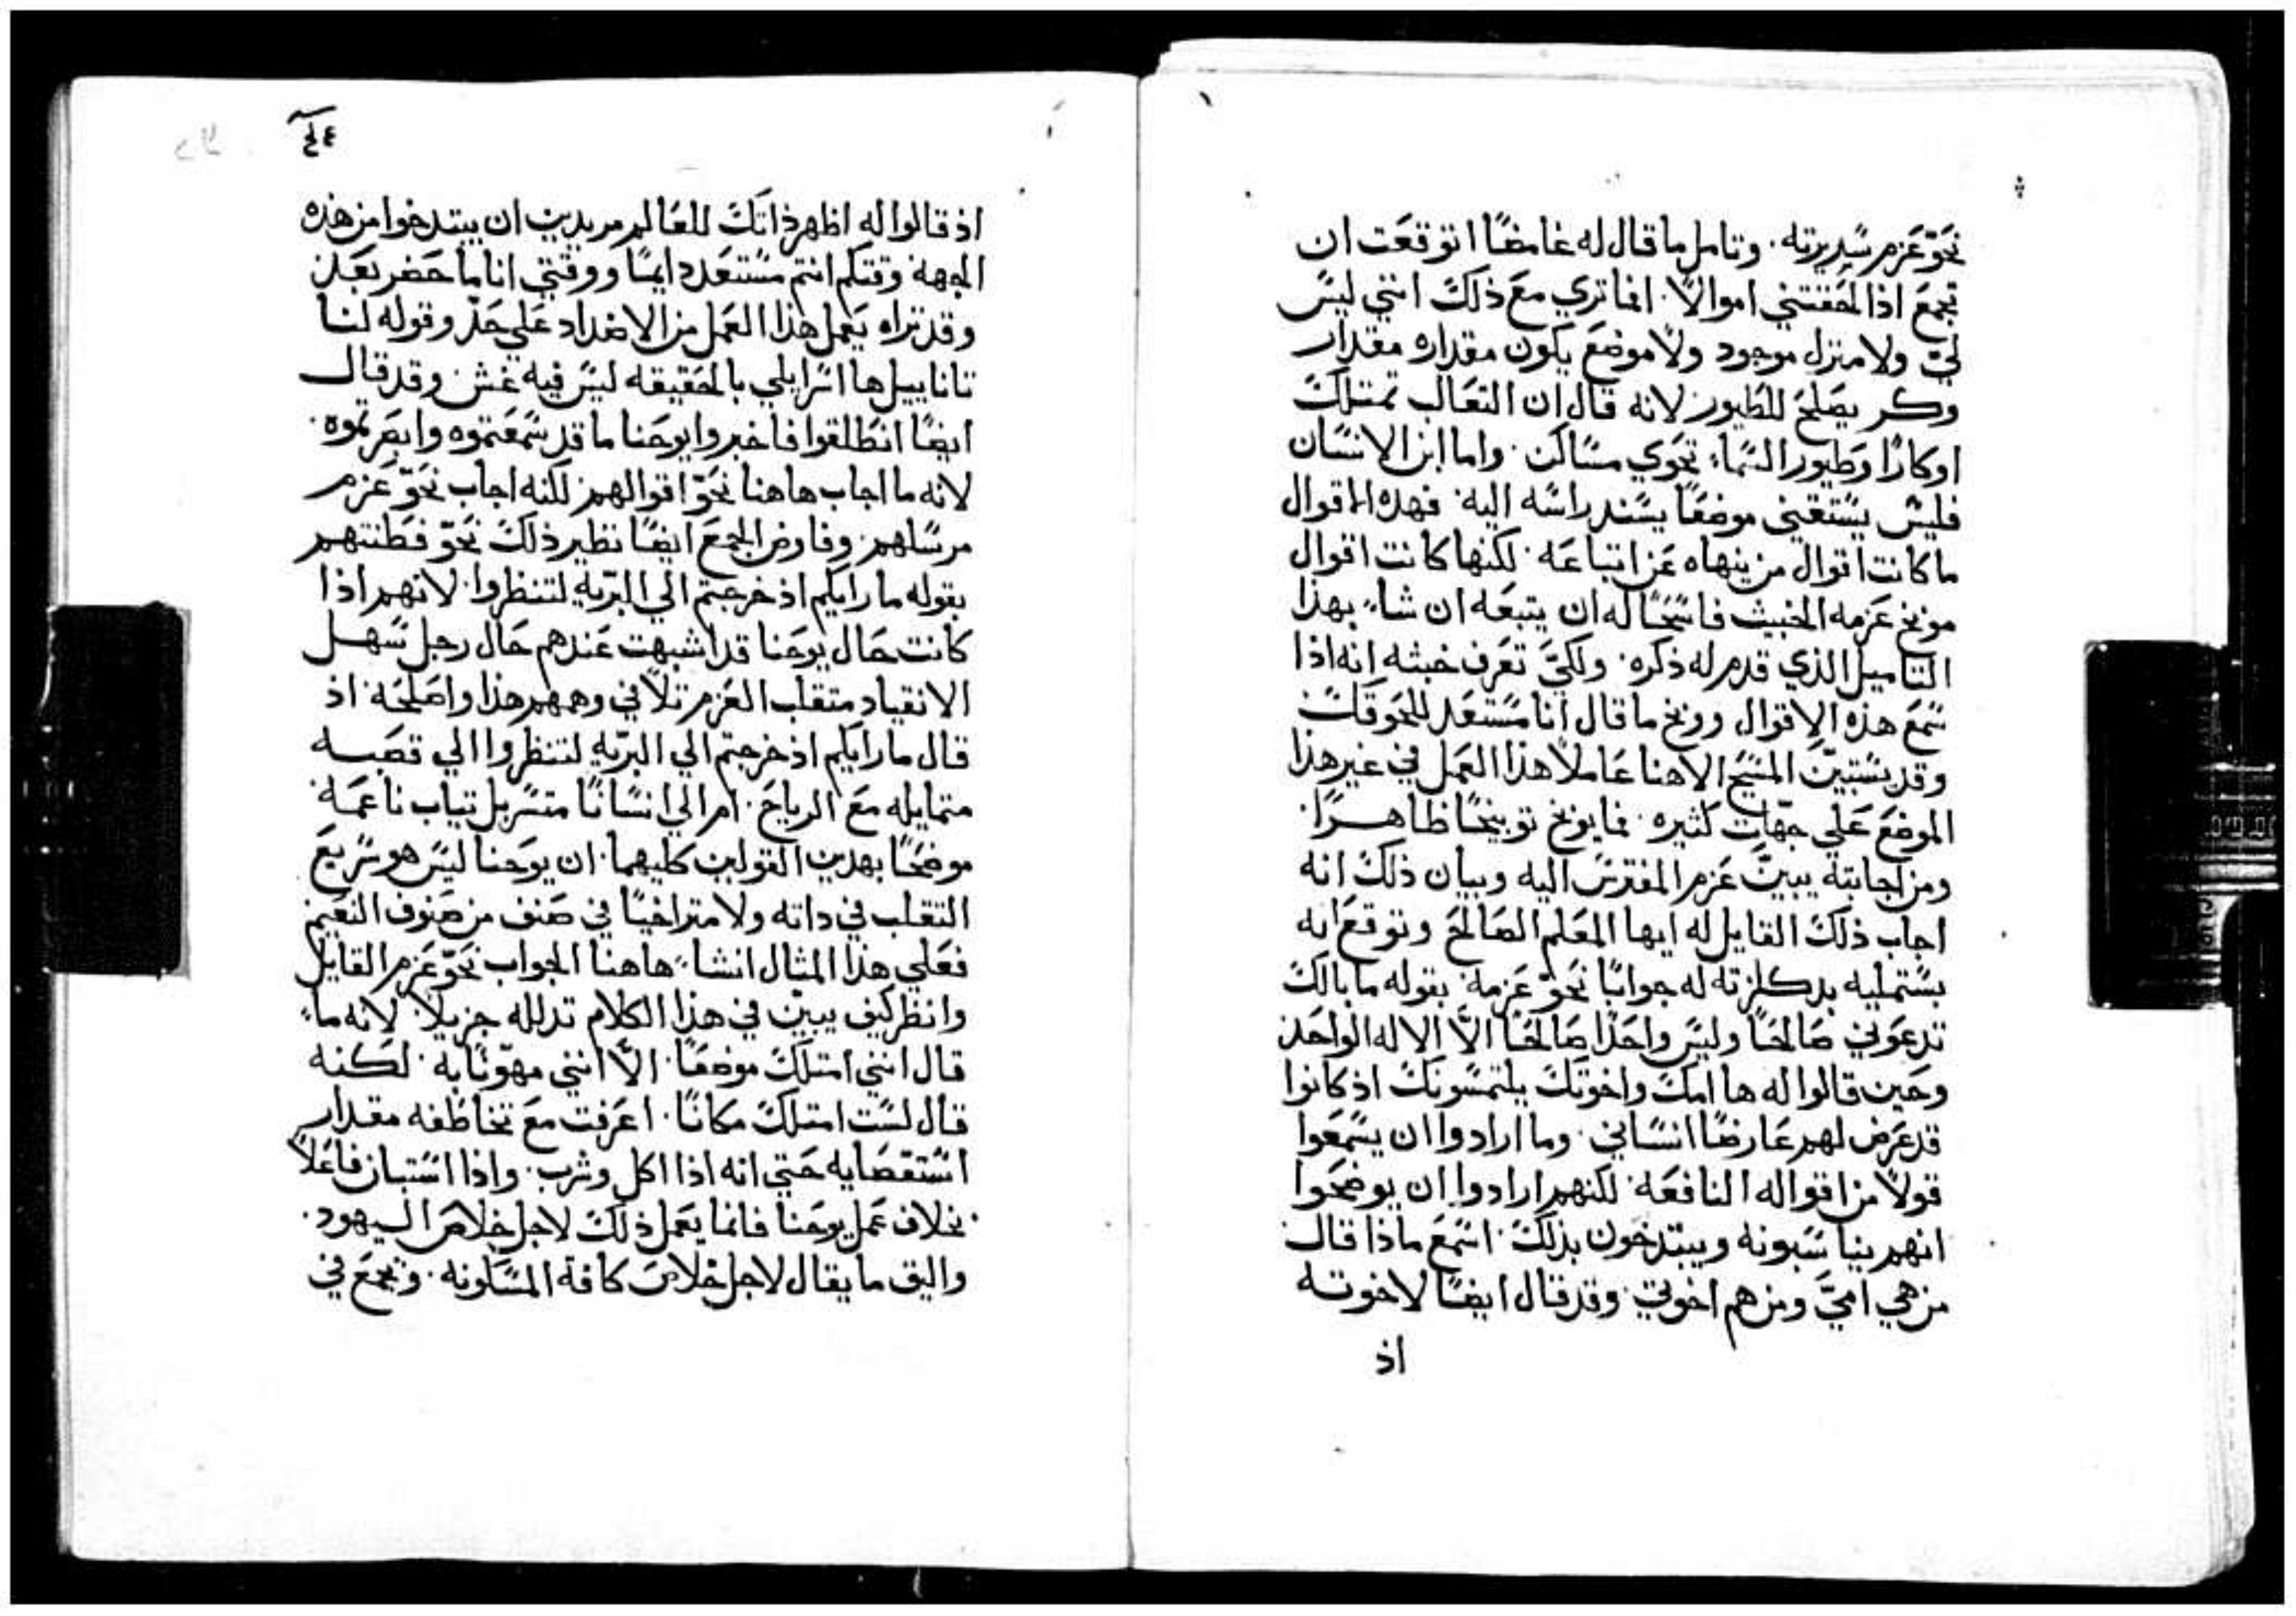 نحو عزم سريرته. وتامل ما قال له غامضًا اتوقعت ان
تجمع اذا لحقتني اموالاً. افما تري مع ذلك انني ليس
لي ولا منزل موجود ولا موضع يكون مقداره مقدار
وكر يصلح للطيور لانه قال ان الثعالب تمتلك
اوكارًا وطيور السماء تحوي مساكن. واما ابن الانسان
فليس يستقني موضعًا يسند راسه اليه. فهذه الاقوال
ما كانت اقوال من ينهاه عن اتباعه. لكنها كانت اقوال
موبخ عزمه الخبيث فاسحًا له ان يتبعه ان شاء بهذا
التاميل الذي قدم له ذكره. ولكيّ تعرف خبثه انه اذا
سمع هذه الاقوال ووبخ ما قال انا مستعد للحوقك
وقد يستبين المسيح الاهنا عاملاً هذا العمل في غير هذا
الموضع علي جهات كثيره. فما يوبخ توبيخًا ظاهرًا.
ومن اجابته يبين عزم المفترس اليه وبيان ذلك انه
اجاب ذلك القايل له ايها المعلم الصالح وتوقع انه
يستمليه بدكلزته له جوابًا نحو عزمه. بقوله ما بالك
تدعوني صالحًا وليس واحدًا صالحًا الاّ الاله الواحد
وحين قالوا له ها امك واخوتك يلتمسونك اذ كانوا
قد عرض لهم عارضًا انساني. وما ارادوا ان يسمعوا
قولاً من اقواله النافعه. لكنهم ارادوا ان يوضحوا
انهم يناسبونه ويبتدخون بذلك. اسمع ماذا قال
من هي اميّ ومن هم اخوتي. وقد قال ايضًا لاخوته
اذ
اذ قالوا له اظهر ذاتك للعالم مريدين ان يبتدخوا من هذه
الجهة وقتكم انتم مستعد دايمًا ووقتي انا ما حضر بعد.
وقد تراه يعمل هذا العمل من الاضداد علي حذّ وقوله لنا
تاناييل ها اسرايلي بالحقيقه ليس فيه غش. وقد قال
ايضًا انطلقوا فاخبروا يوحنا ما قد سمعتموه وابصرتموه.
لانه ما اجاب هاهنا نحو اقوالهم لكنه اجاب نحو عزم
مرسلهم. وفاوض الجمع ايضًا نظير ذلك نحو فطنتهم
بقوله ما رايكم اذ خرجتم الي البريه لتنظروا. لانهم اذا
كانت حال يوحنا قد اشبهت عندهم حال رجل سهل
الانقياد متقلب العزم تلافي وهمهم هذا واصلحه. اذ
قال ما رايكم اذ خرجتم الي البريه لتنظروا الي قصبه
متمايله مع الرياح. ام الي انسانًا متسربل تياب ناعمة.
موضحًا بهدين القولين كليهما. ان يوحنا ليس هو سريع
التقلب في داته ولا متراخيًا في صنف من صنوف النعيم.
فعلي هذا المثال انشاء هاهنا الجواب نحو عزم القايل
وانظر كيف يبين في هذا الكلام تدلله جزيلاً. لانه ما
قال انني امتلك موضعًا. الاّ انني مهوّنًا به. لكنه
قال لست امتلك مكانًا. اعرفت مع تخاطفه مقدار
استقصايه حتي انه اذا اكل وشرب. واذا استبان فاعلاً
بخلاف عمل يوحنا فانما يعمل ذلك لاجل خلاص اليهود.
واليق ما يقال لاجل خلاص كافة المسكونه. ونجمع في